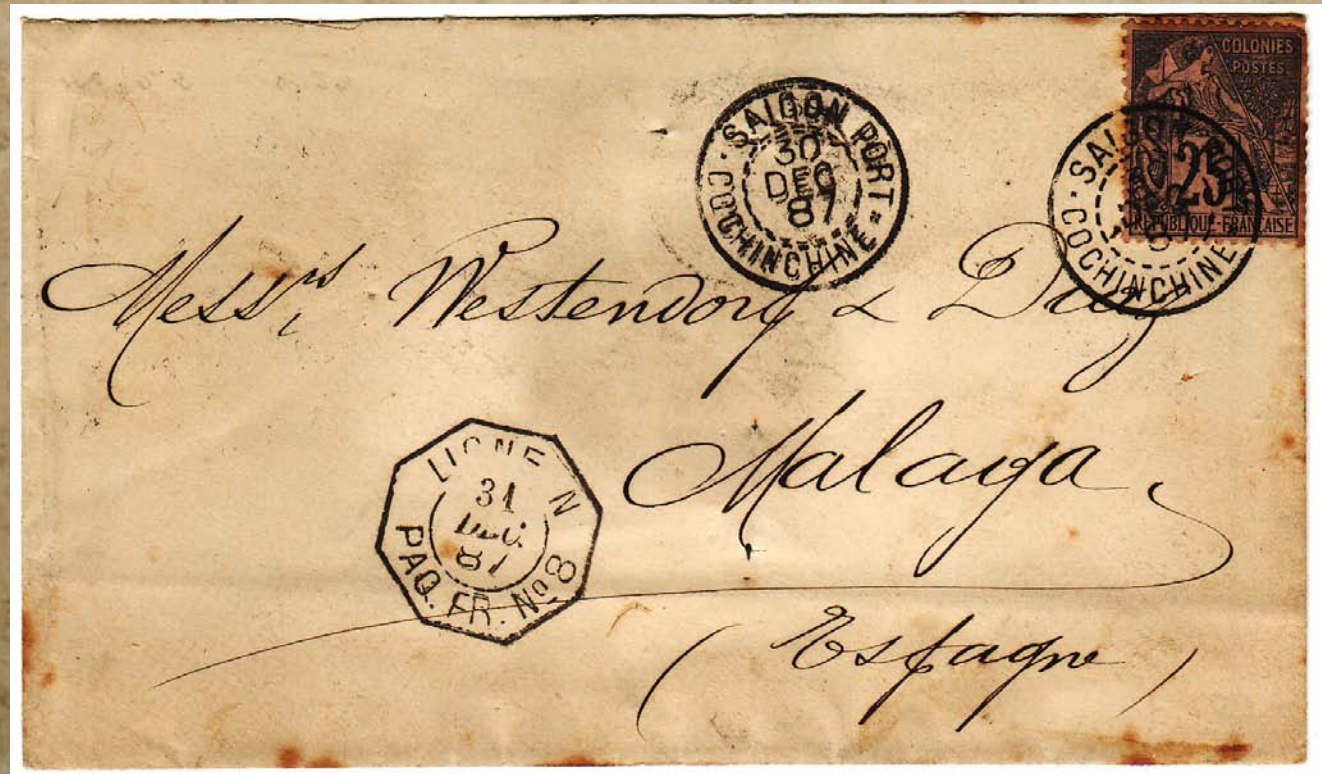 COLONIES
POSTES
25
REPUBLIQUE FRANÇAISE
SAIGON PORT
30
DEC
87
COCHINCHINE
SAIGON PORT
COCHINCHINE
Messrs, Westendorp &
Malaga,
LIGNE N
31
DEC.
87
PAQ. FR. No 8
(Espagne)